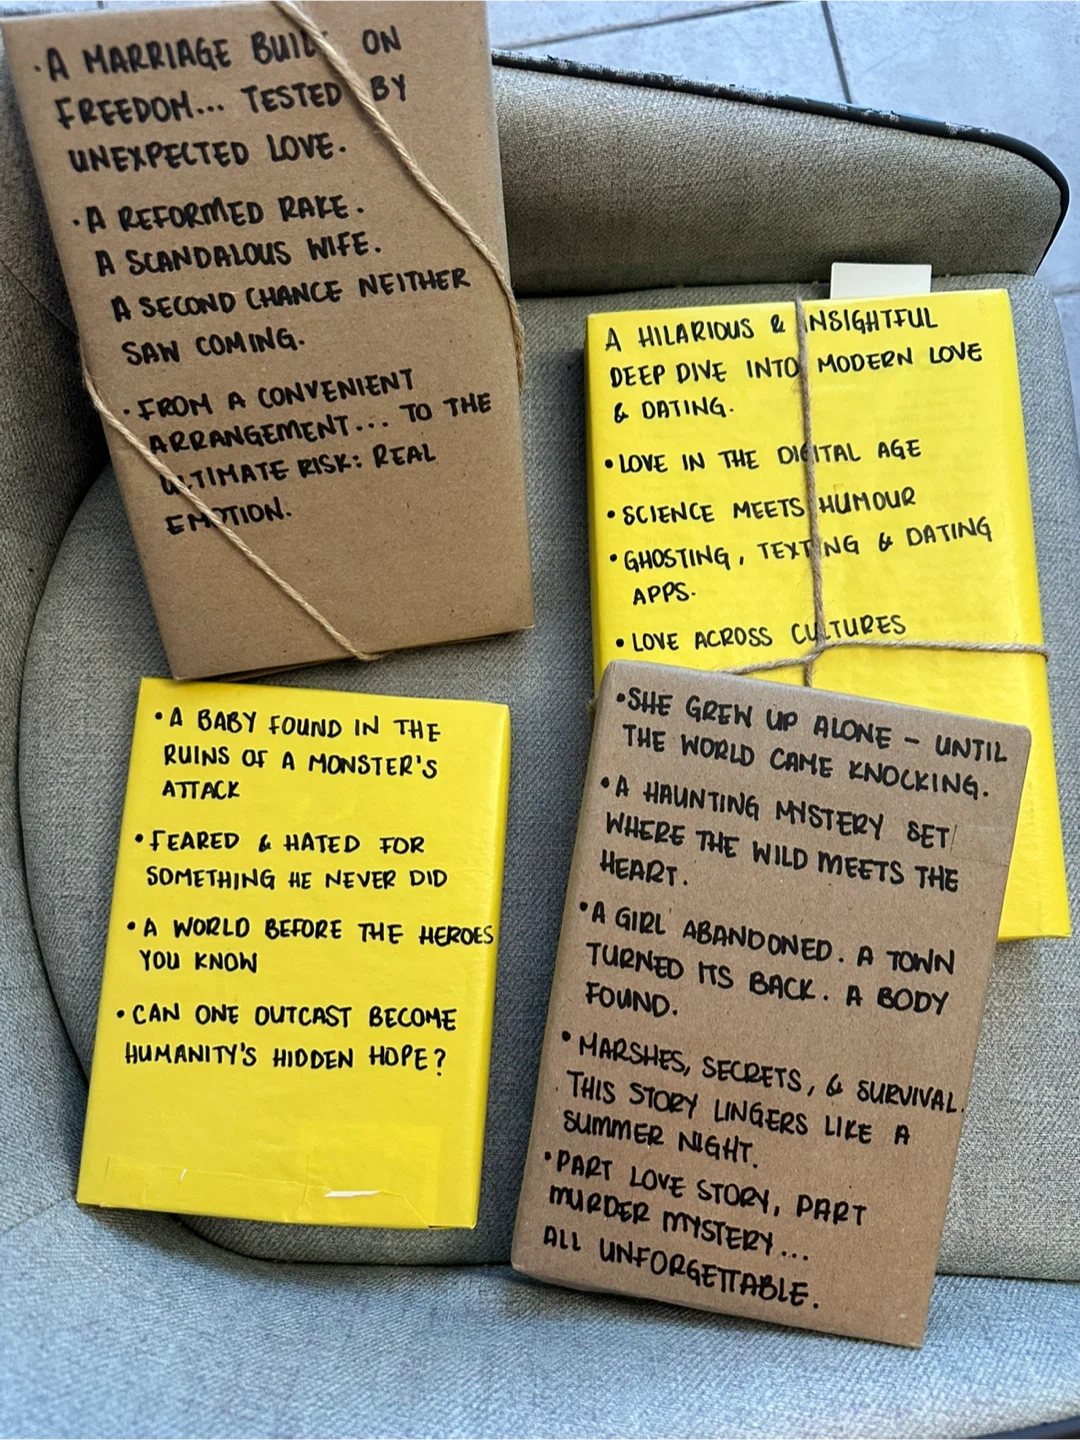 · A MARRIAGE BUILT ON
FREEDOM... TESTED BY
UNEXPECTED LOVE.
· A REFORMED RAKE.
A SCANDALOUS WIFE.
A SECOND CHANCE NEITHER
SAW COMING.
· FROM A CONVENIENT
ARRANGEMENT... TO THE
ULTIMATE RISK: REAL
EMOTION.
A HILARIOUS & INSIGHTFUL
DEEP DIVE INTO MODERN LOVE
& DATING.
• LOVE IN THE DIGITAL AGE
• SCIENCE MEETS HUMOUR
• GHOSTING, TEXTING & DATING
APPS.
• LOVE ACROSS CULTURES
• A BABY FOUND IN THE
RUINS OF A MONSTER'S
ATTACK
• FEARED & HATED FOR
SOMETHING HE NEVER DID
• A WORLD BEFORE THE HEROES
YOU KNOW
• CAN ONE OUTCAST BECOME
HUMANITY'S HIDDEN HOPE?
• SHE GREW UP ALONE – UNTIL
THE WORLD CAME KNOCKING.
• A HAUNTING MYSTERY SET
WHERE THE WILD MEETS THE
HEART.
• A GIRL ABANDONED. A TOWN
TURNED ITS BACK. A BODY
FOUND.
• MARSHES, SECRETS, & SURVIVAL.
THIS STORY LINGERS LIKE A
SUMMER NIGHT.
• PART LOVE STORY, PART
MURDER MYSTERY...
ALL UNFORGETTABLE.